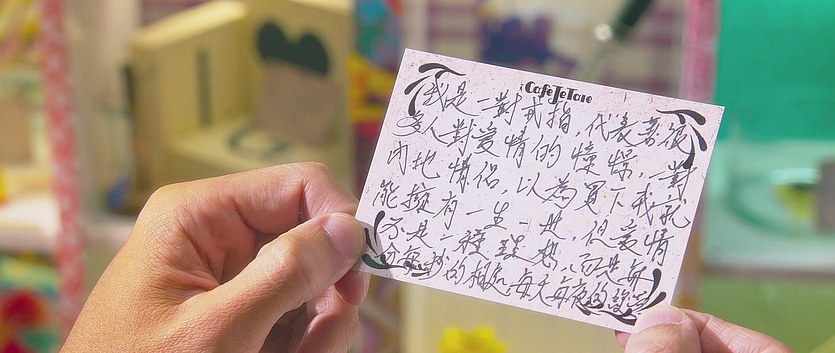 CafeJeTare
我是一對戒指，代表著很
多人對愛情的憧憬，一對
內地情侶，以為買下我就
能擁有一生一世，但愛情
不是一種，而是每
分每秒的相知每天每夜的